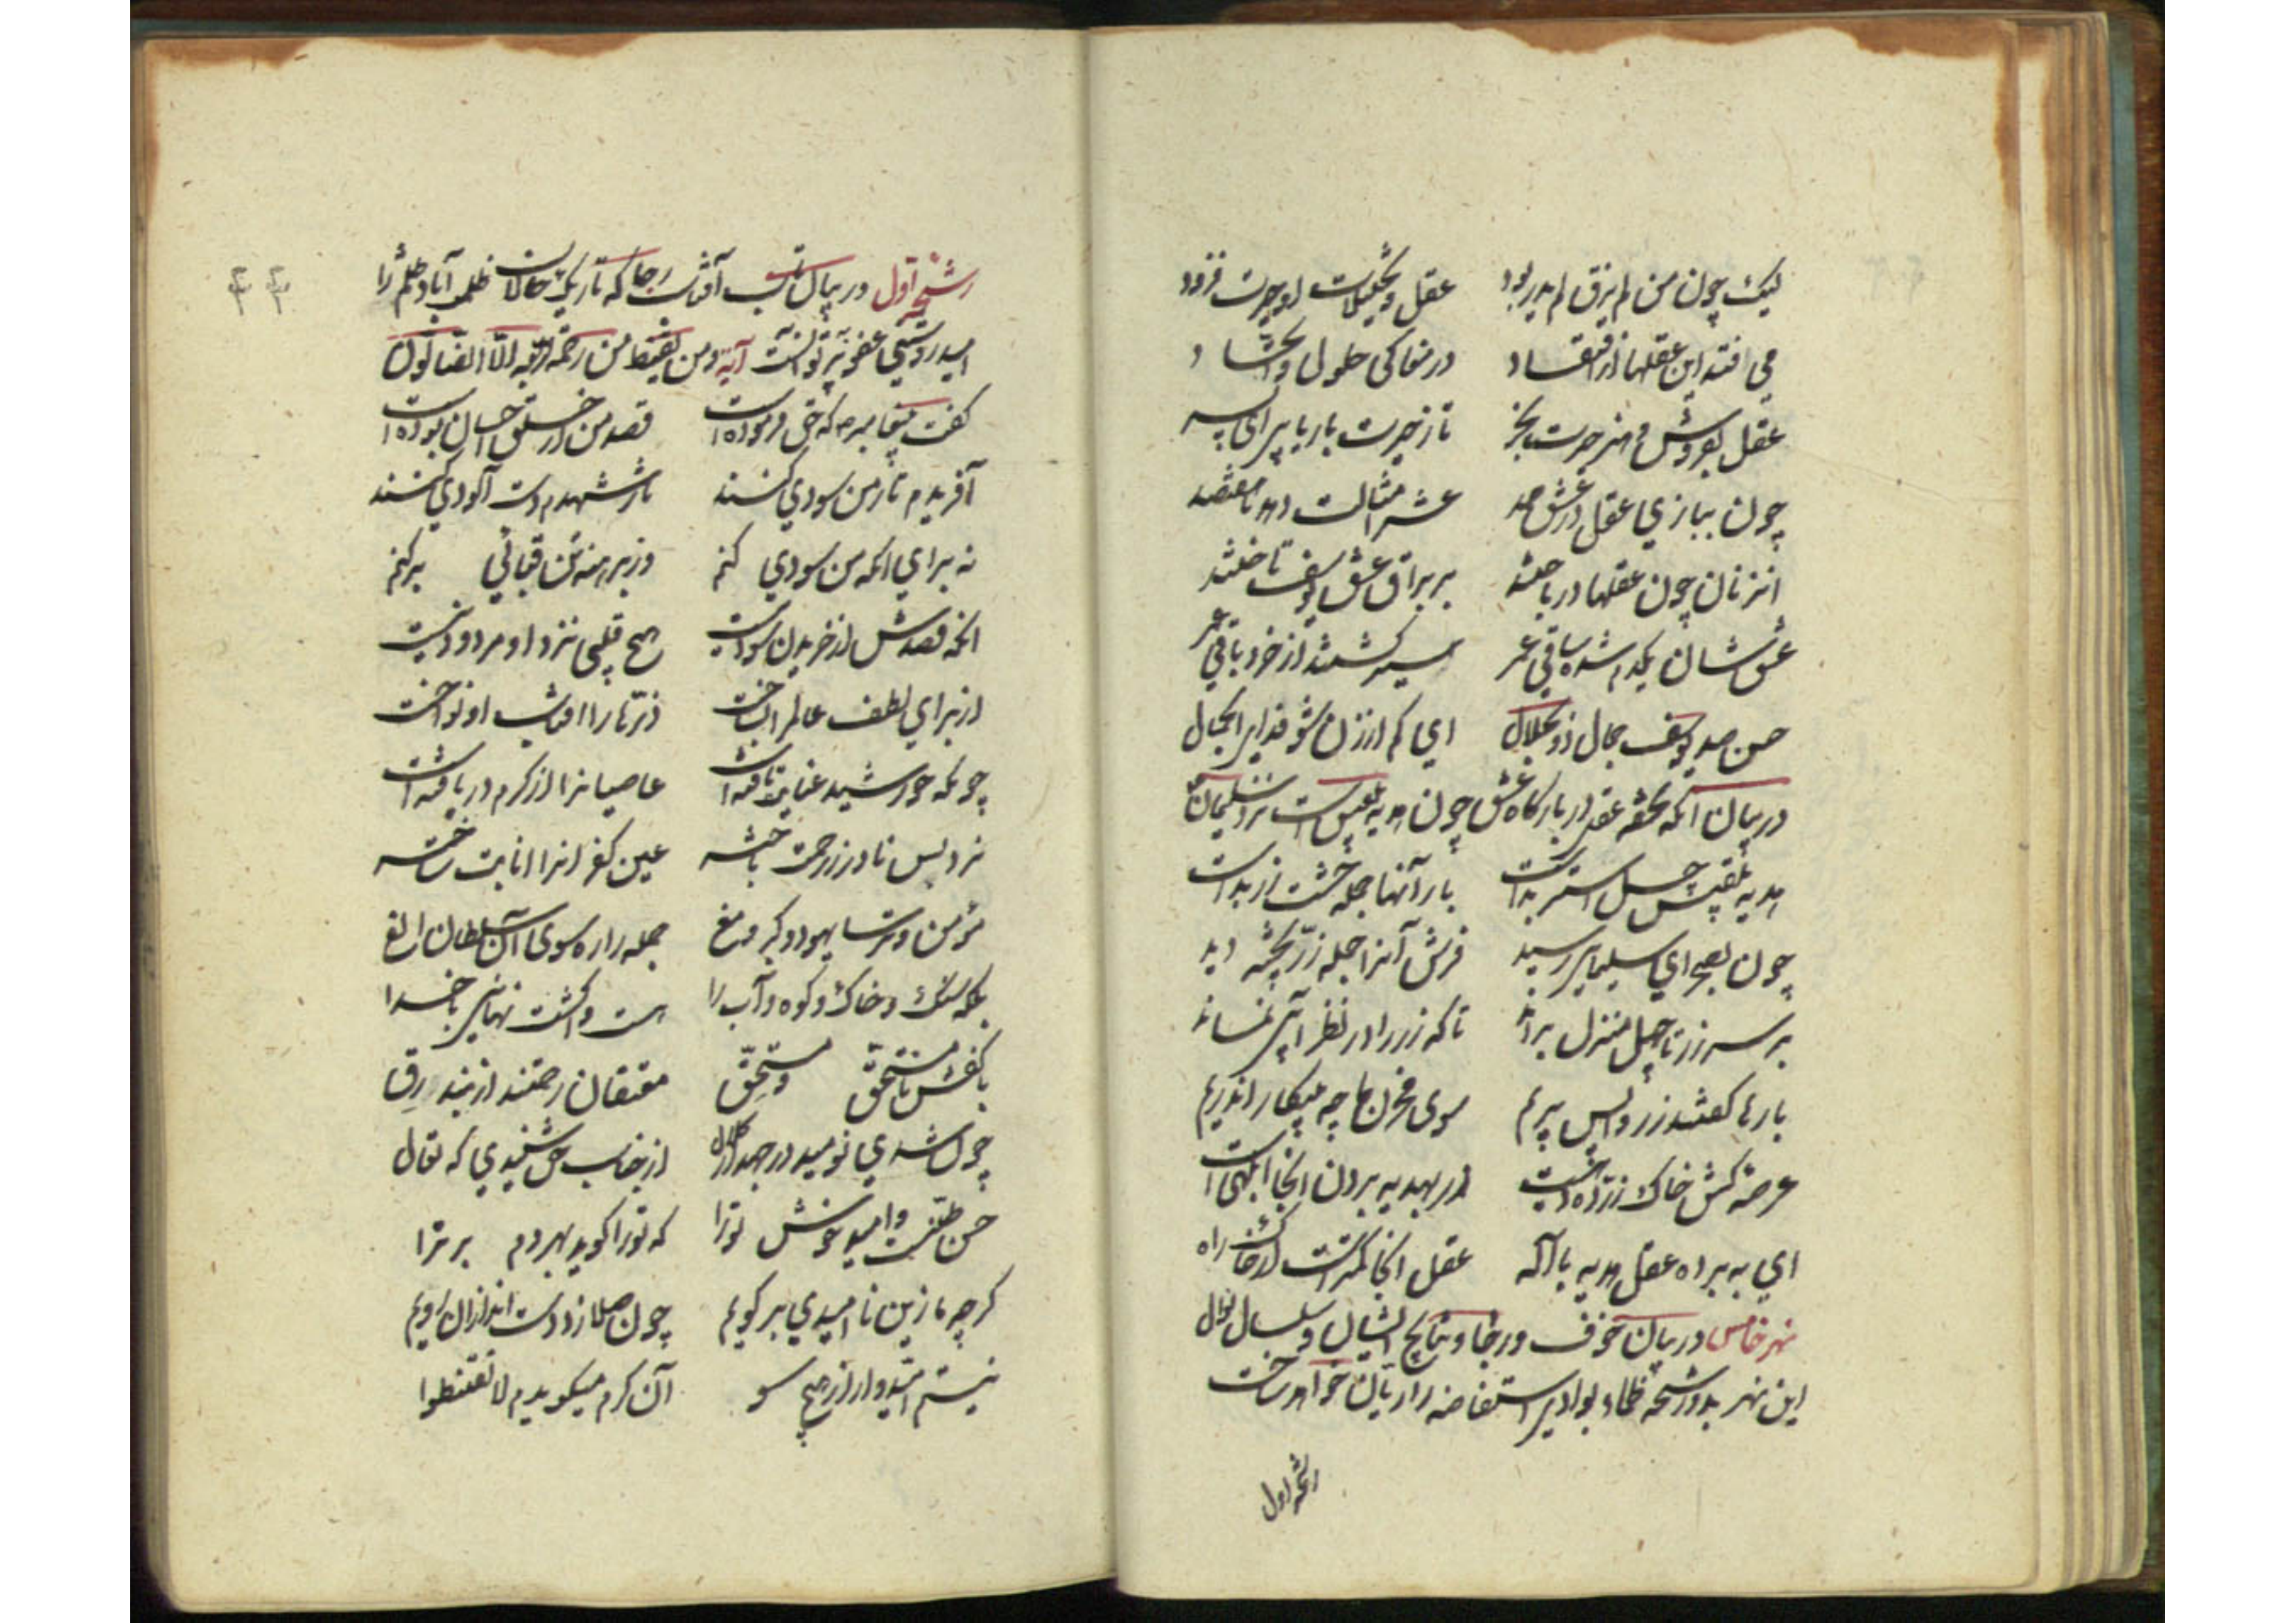 لیک چون من لم یذق لم یدر بود عقل و تخییلات او حیرت فزود
می افتد این عقلها در افتقاد در مغاکی حلول و اتحاد
عقل بفروش و هنر حیرت بخر تا ز حیرت بار یابی ای پسر
چون ببازی عقل در عشق صمد عشر امثالت دهد تا هفتصد
آن زنان چون عقلها درباختند بر براق عشق یوسف تاختند
عقلشان یکدم ستد ساقی عمر سیر گشتند از خرد باقی عمر
حسن صد یوسف جمال ذوالجلال ای کم از زن شو فدای آن جمال
در بیان آنکه تحفه عقل در بارگاه عشق چون هدیه بلقیس است نزد سلیمان
هدیه بلقیس چهل استر بدست بار آنها جمله خشت زر بدست
چون بصحرای سلیمانی رسید فرش آنرا جمله زر پخته دید
بر سر زر تا چهل منزل براند تا که زر را در نظر آبی نماند
بارها گفتند زر واپس بریم سوی مخزن ما چه بیکار اندریم
عرصه کش خاک زر ده دهیست زر بهدیه بردن آنجا ابلهی است
ای ببرده عقل هدیه با اله عقل آنجا کمترست از خاک راه
نهر خامس در بیان خوف و رجا و نتایج ایشان
این نهر بدو رشحه
رشحه اول
۴۴
رشحه اول در بیان آفتاب رجا که تاریک حالان ظلمت آباد ظلم را
امید روشنی عفو پرتو آنست آیه ومن یقنط من رحمة ربه الا الضالون
گفت پیغامبر که حق فرموده است قصد من از خلق احسان بوده است
آفریدم تا ز من سودی کنند تا ز شهدم دست آلودی کنند
نه برای آنکه من سودی کنم وز برهنه من قبائی برکنم
آنکه قصدش از خریدن سود نیست هیچ قلبی نزد او مردود نیست
از برای لطف عالم را بساخت ذره ها را آفتاب او نواخت
چونکه خورشید عنایت تافته است عاصیانرا از کرم دریافته است
نرد بس نادر ز رحمت باخته عین کفرانرا انابت ساخته
مؤمن و ترسا یهود و گبر و مغ جمله را رو سوی آن سلطان الغ
بلکه سنگ و خاک و کوه و آب را هست واگشت نهانی با خدا
با کفش نامستحق و مستحق معتقان رحمتند از بند رق
چون شدی نومید در جهد از کلال از جناب حق شنیدی که تعال
حسن ظنست و امید خوش ترا که ترا گوید بهر دم برترا
گرچه ما زین ناامیدی در گویم چون صلا زد دست اندازان رویم
نیستم امیدوار از هیچ سو آن کرم میگویدم لا تقنطوا